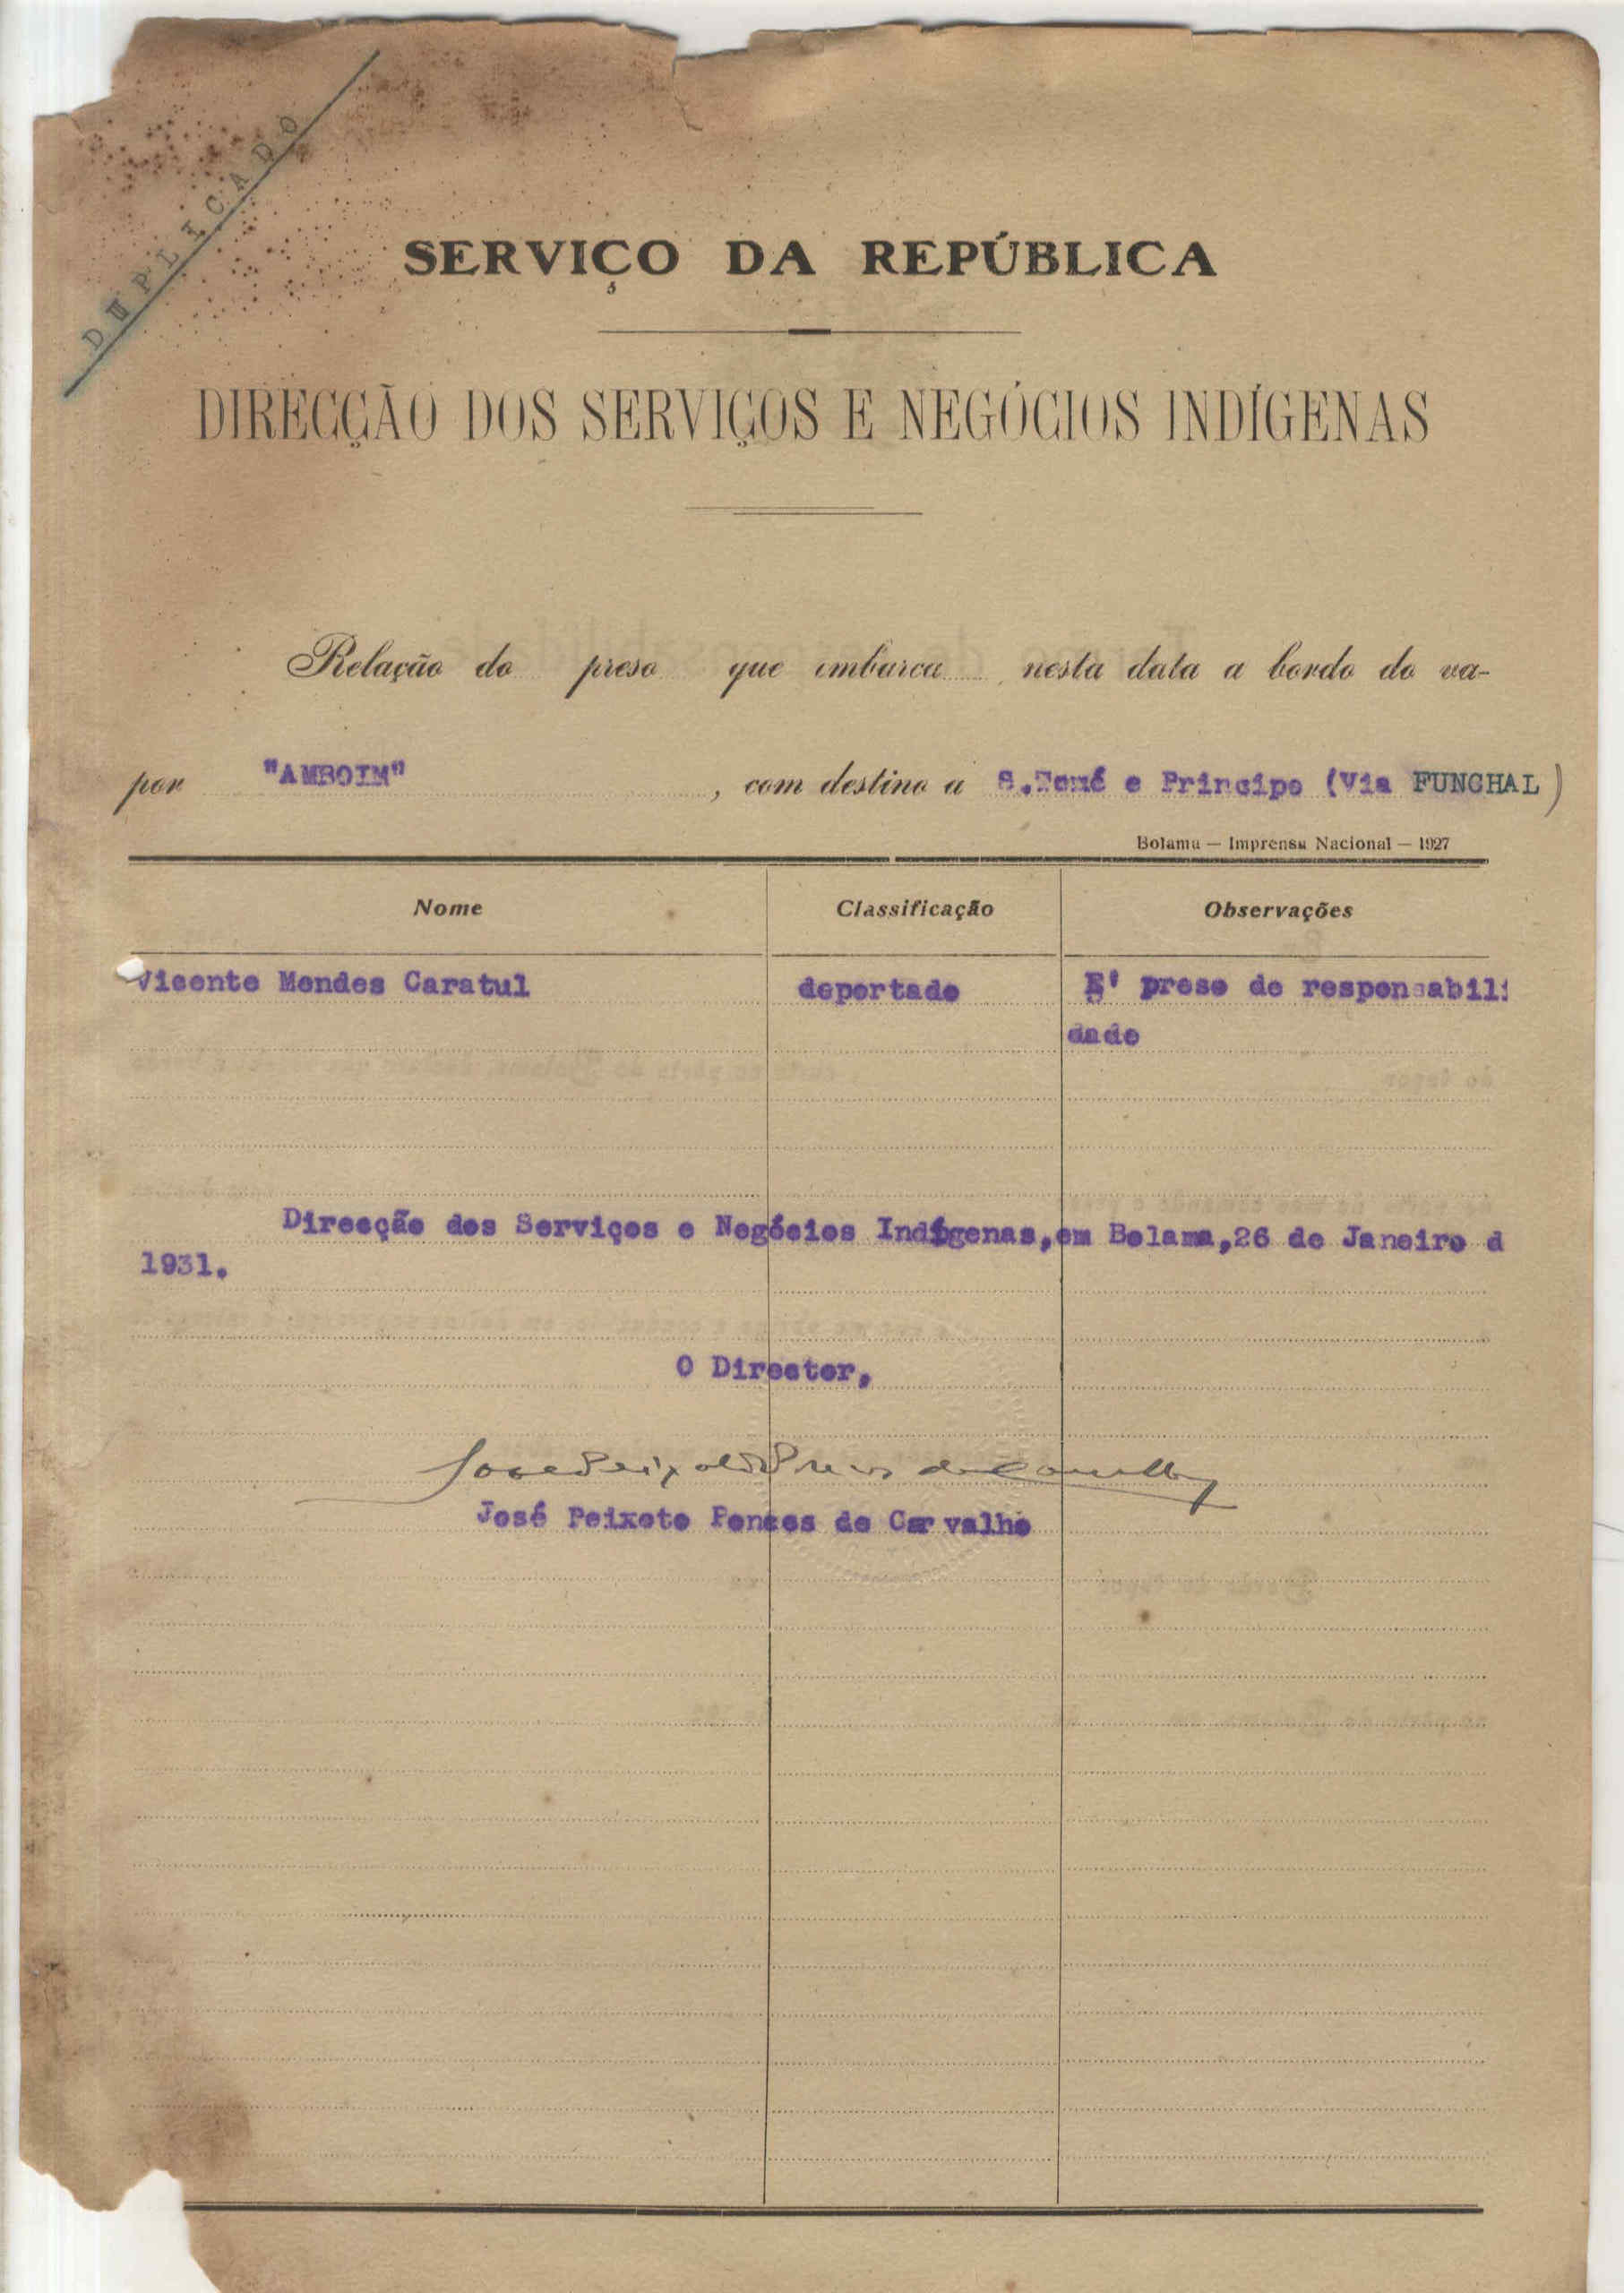 DUPLICADO
SERVIÇO DA REPÚBLICA
DIRECÇÃO DOS SERVIÇOS E NEGÓCIOS INDÍGENAS
Relação do preso que embarca nesta data a bordo do va-
por "AMBOIM", com destino a S.Tomé e Principe (Via FUNCHAL)
Bolama — Imprensa Nacional — 1927
Nome Classificação Observações
Vicente Mendes Caratul deportado E' preso de responsabili
dade
Direcção dos Serviços e Negócios Indígenas,em Bolama,26 de Janeiro d
1931.
O Director,
José Peixoto Ponces de Carvalho
José Peixoto Ponces de Carvalho